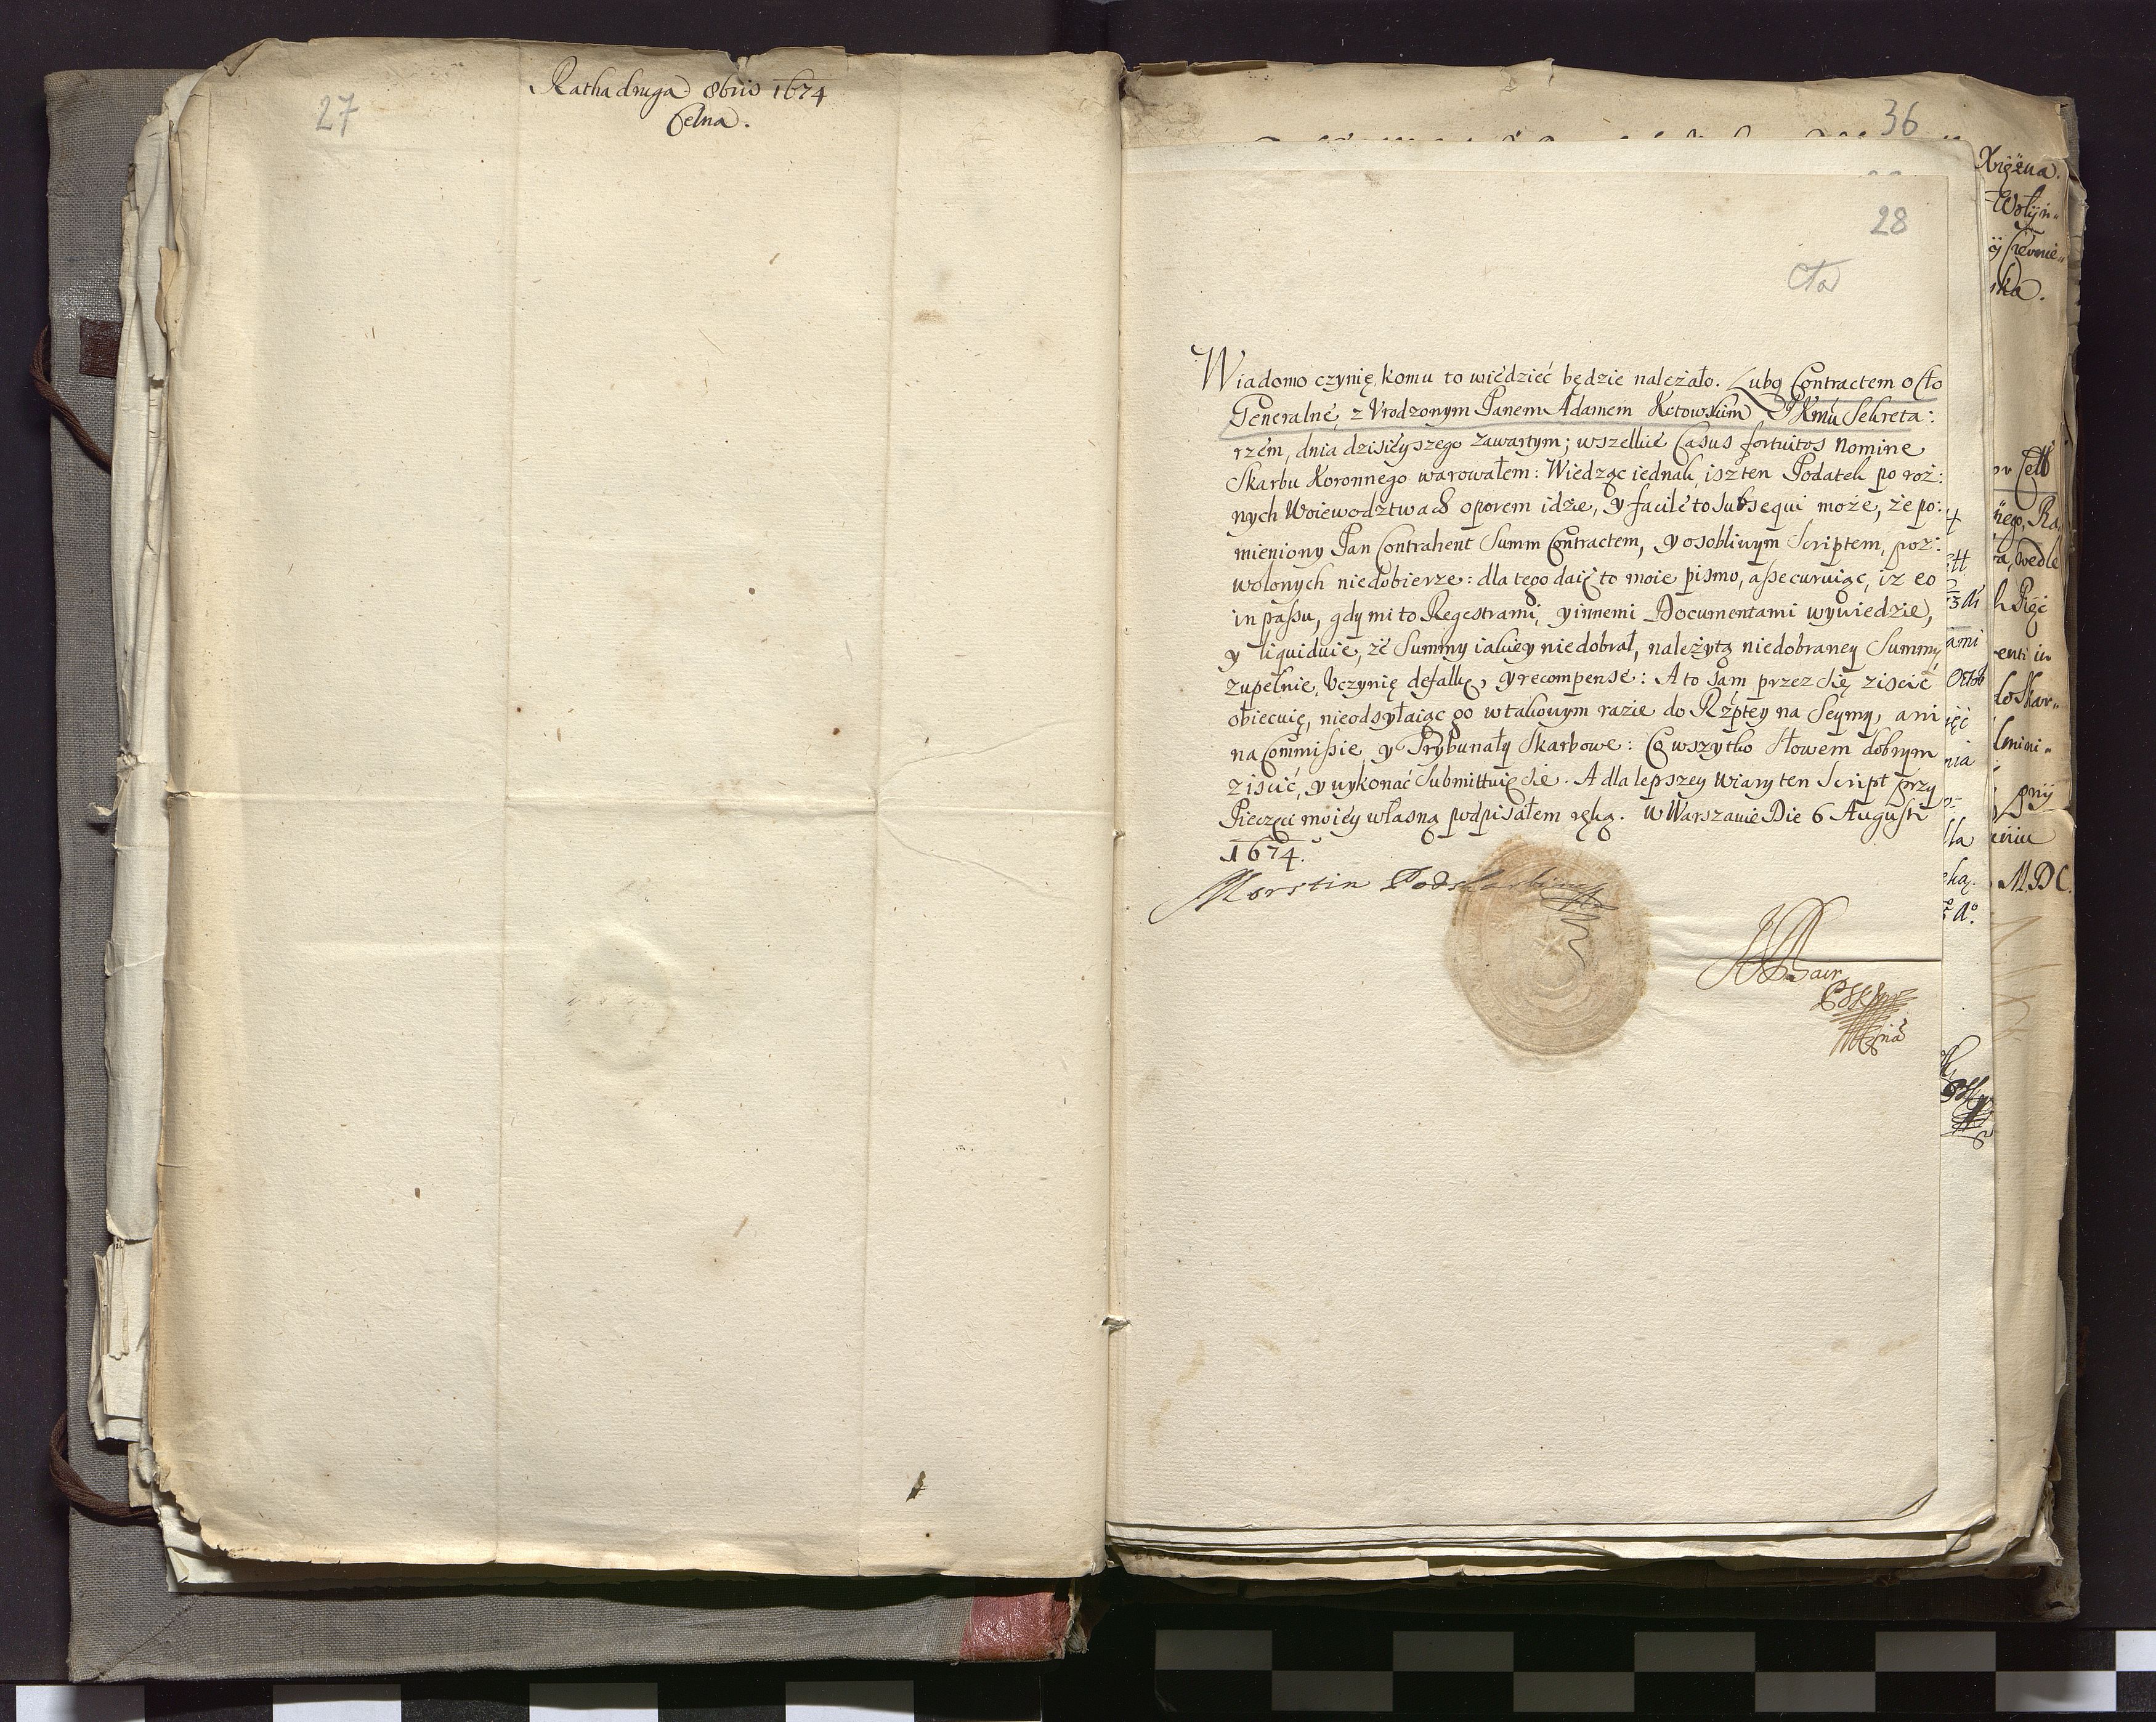 27
Ratha druga 8bris 1674
Celna.
36
28
Cło
Wiadomo czynię, komu to wiedzieć będzie należało. Lubo Contractem o Cło
Generalne, z Vrodzonym Panem Adamem Kotowskim JKMci Sekreta:
rzem, dnia dzisieyszego zawartym; wszelkie Casus fortuitos nomine
Skarbu Koronnego warowałem: Wiedząc iednak, isz ten Podatek po roż:
nych Woiewodztwach oporem idzie, y facile to subsequi może, że po:
mieniony Pan Contrahent Summ Contractem, y osobliwym Scriptem, poz:
wolonych niedobierze: dla tego daię to moie pismo, assecuruiąc, iż eo
in passu, gdy mi to Regestrami, y innemi Documentami wywiedzie,
y liquiduie, że Summy iakiey niedobrał, należytą niedobraney Summy
zupełnie, Vczynię defalkę, y recompensę: A to sam przez się ziscić
obiecuię, nieodsyłaiąc go w takowym razie do Rzptey na Seymy, ani
na Commissie, y Trybunały Skarbowe: Co wszytko słowem dobrym
ziscić, y wykonać submittuię się. A dla lepszey wiary ten Script przy
Pieczęci moiey własną podpisałem ręką. w Warszawie Die 6 Augusti
1674.
Morstin Podskarbi
Xiężna.
Wołyń„
ska.
Cełł
nego, Ra
wedle
Pięć
do Skar„
MDC.